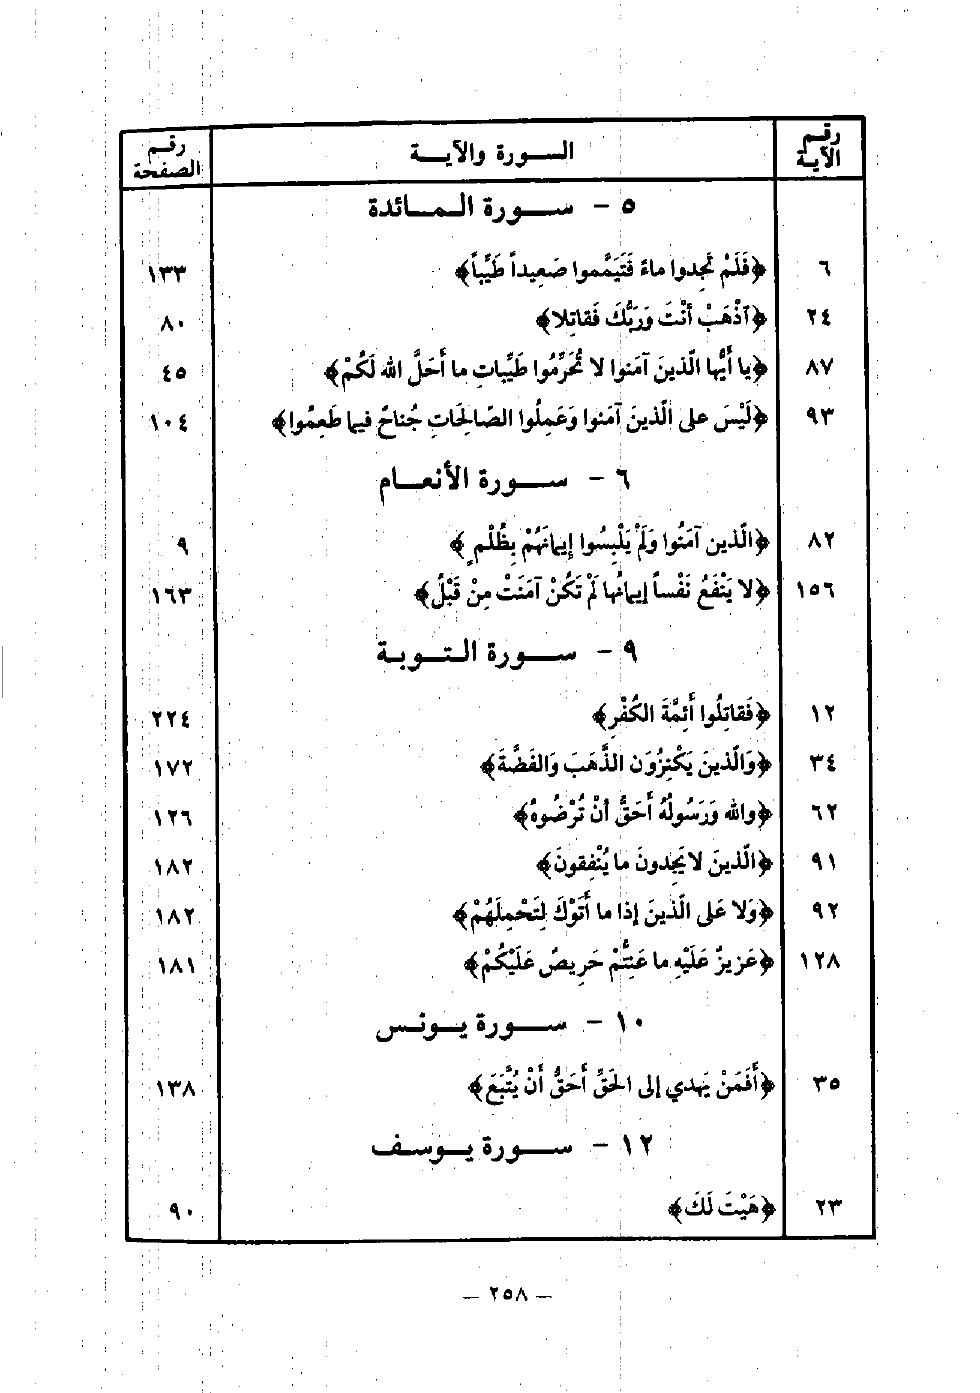 رقم الآية السورة والآية رقم الصفحة
٥ - سورة المائدة
٦ ﴿فَلَمْ تَجِدوا ماءً فَتَيَمَّموا صَعِيداً طَيِّباً﴾ ١٣٣
٢٤ ﴿آذْهَبْ أنْتَ وَرَبُّكَ فَقاتِلا﴾ ٨٠
٨٧ ﴿يا أَيُّها الّذينَ آمَنوا لا تُحَرِّمُوا طَيِّباتِ ما أَحَلَّ الله لَكُمْ﴾ ٤٥
٩٣ ﴿لَيْسَ على الّذينَ آمَنوا وَعَمِلُوا الصّالِحَاتِ جُناحٌ فيما طَعِمُوا﴾ ١٠٤
٦ - سورة الأنعام
٨٢ ﴿الّذين آمَنُوا وَلَمْ يَلْبِسُوا إيمانَهُمْ بِظُلْمٍ﴾ ٩
١٥٦ ﴿لا يَنْفَعُ نَفْساً إيمانُها لَمْ تَكُنْ آمَنَتْ مِنْ قَبْلُ﴾ ١٦٣
٩ - سورة التوبة
١٢ ﴿فَقاتِلُوا أَئِمَّةَ الكُفْرِ﴾ ٢٢٤
٣٤ ﴿وَالّذينَ يَكْنِزُون الذَّهَبَ وَالفَضَّةَ﴾ ١٧٢
٦٢ ﴿والله وَرَسُولُهُ أَحَقُّ أنْ تُرْضُوهُ﴾ ١٢٦
٩١ ﴿الّذينَ لا يَجِدونَ ما يُنْفِقونَ﴾ ١٨٢
٩٢ ﴿وَلا عَلى الّذينَ إذا ما أَتَوْكَ لِتَحْمِلَهُمْ﴾ ١٨٢
١٢٨ ﴿عَزيزٌ عَلَيْهِ ما عَنِتُّمْ حَرِيصٌ عَلَيْكُمْ﴾ ١٨١
١٠ - سورة يونس
٣٥ ﴿أَفَمَنْ يَهدي إلى الحَقِّ أَحَقُّ أَنْ يُتَّبَعَ﴾ ١٣٨
١٢ - سورة يوسف
٢٣ ﴿هَيْتَ لَكَ﴾ ٩٠
— ٢٥٨ —